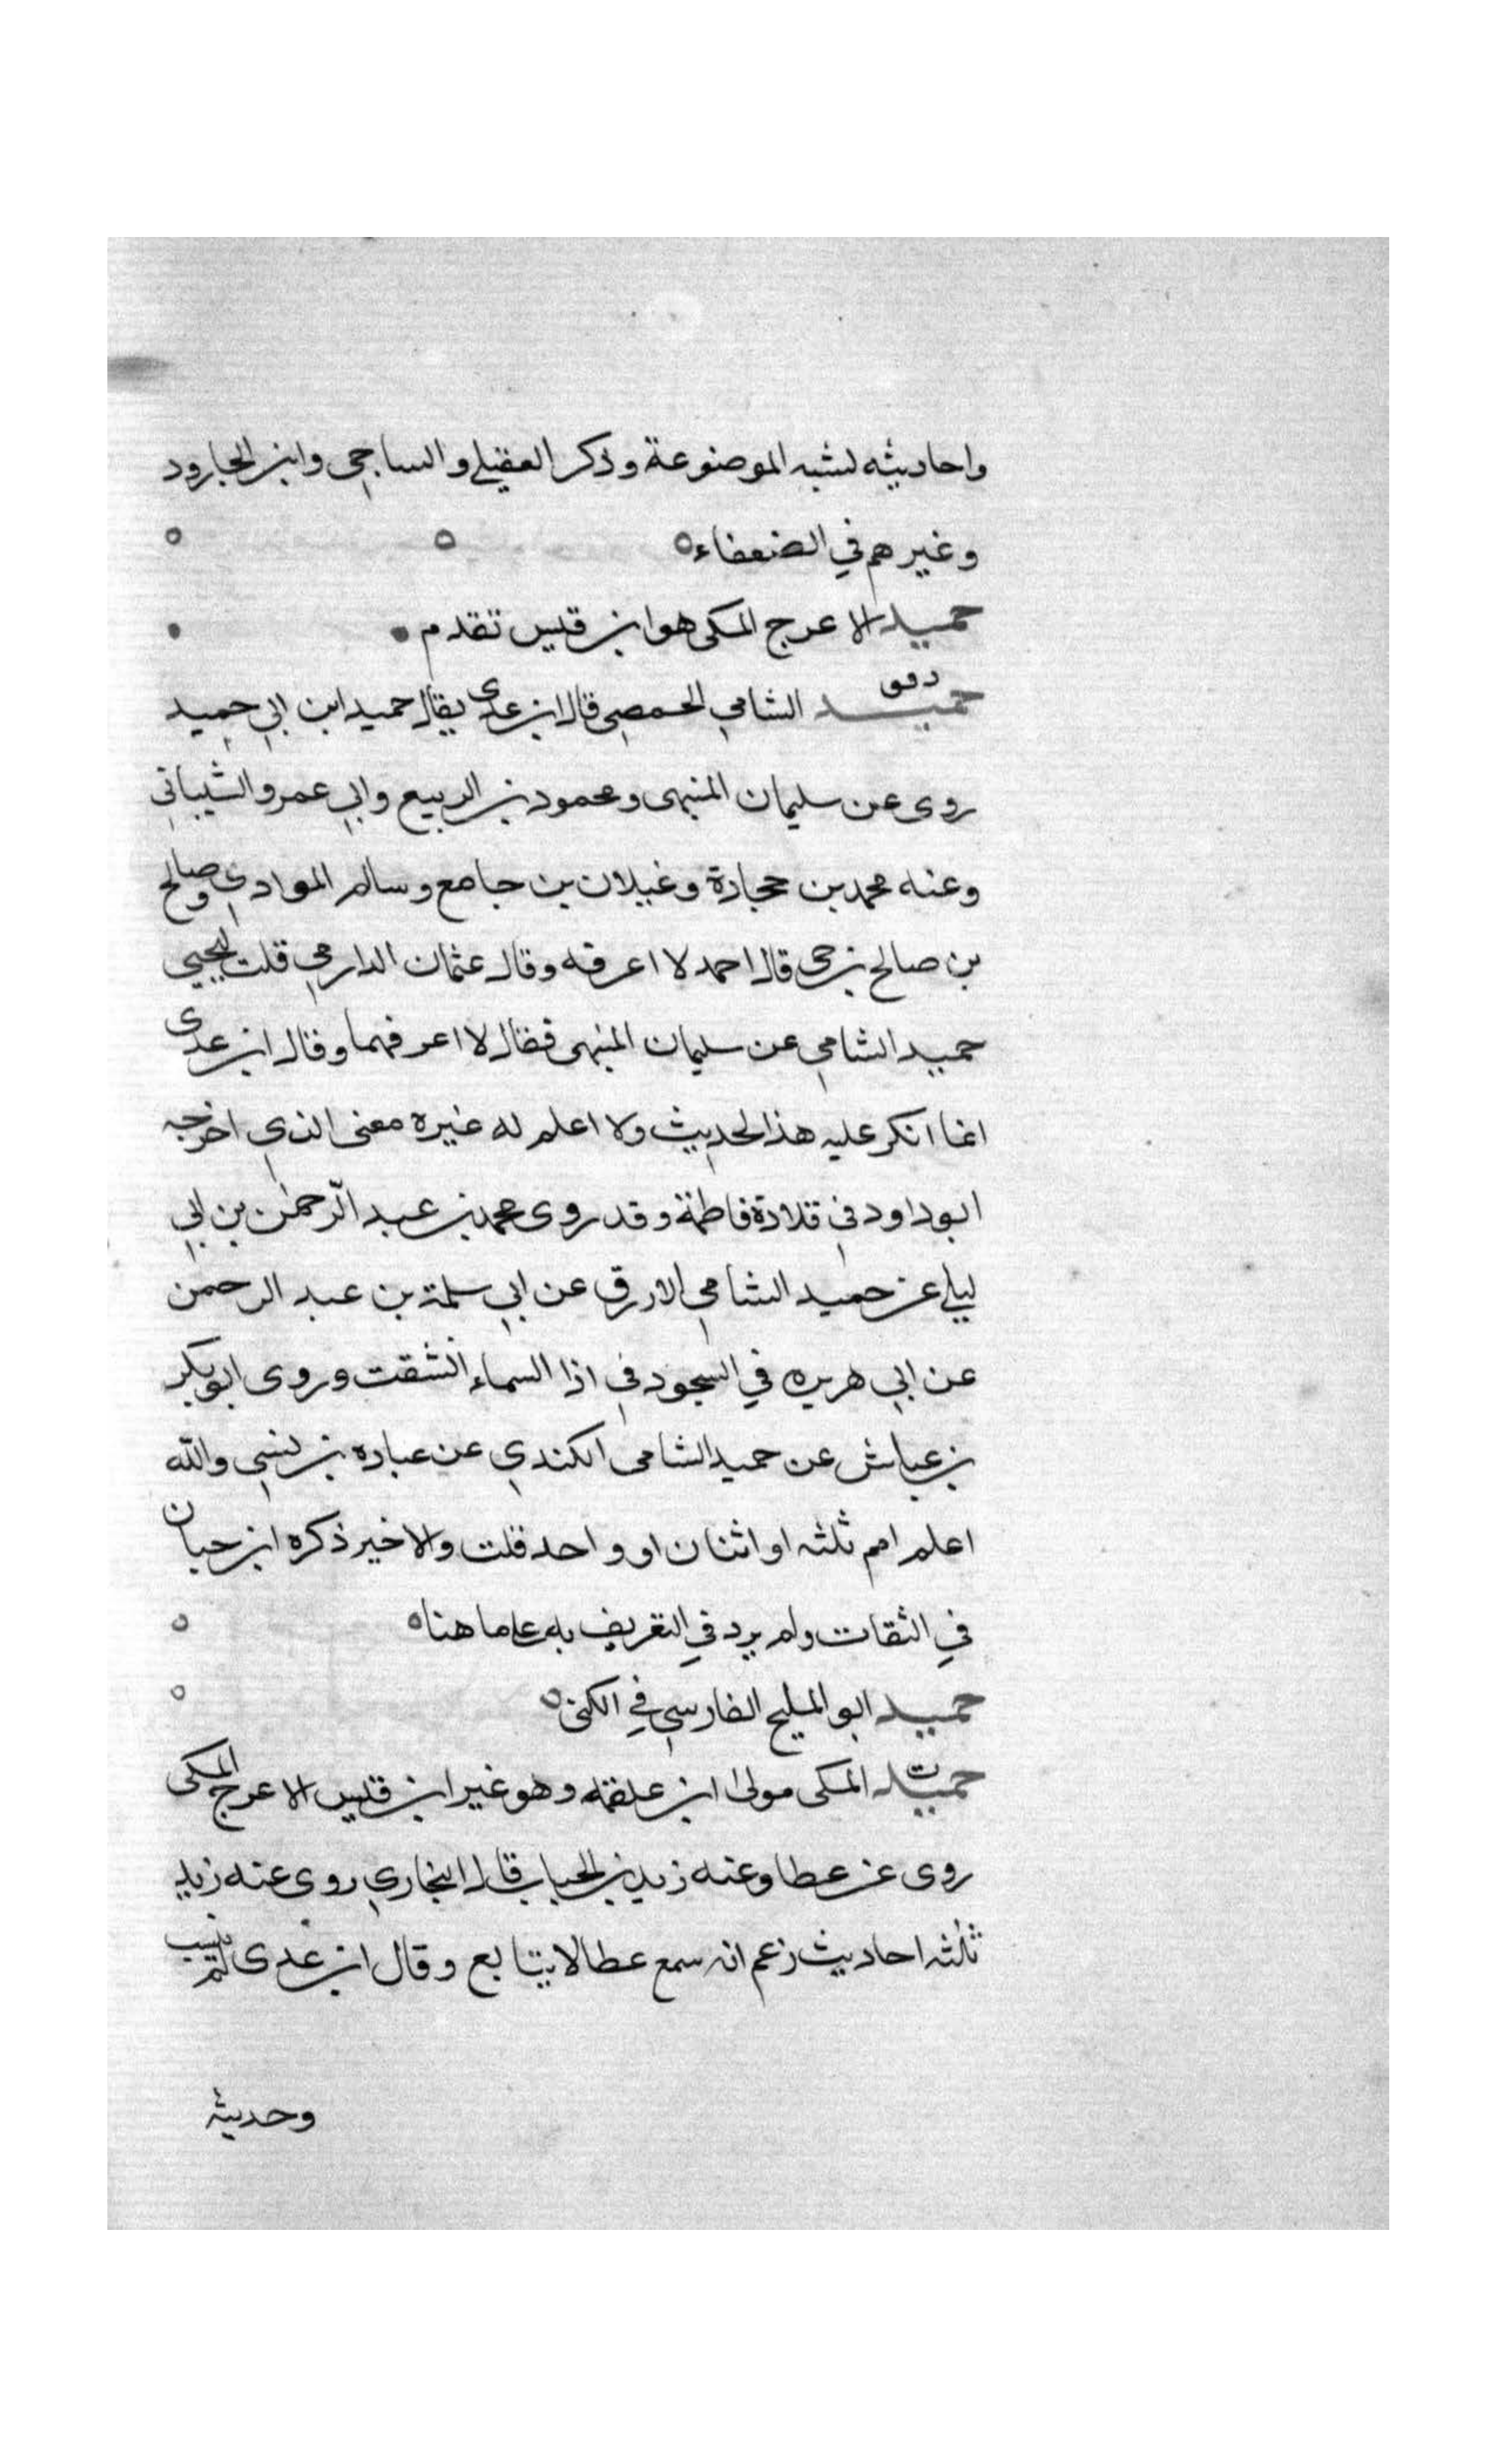 واحاديثه تشبه الموضوعة وذكر العقيلي والساجي وابن الجارود
وغيرهم في الضعفاء
حميد الاعرج المكى هو ابن قيس تقدم
د فق
حميد الشامي الحمصي قال ابن عدى يقال حميد ابن ابي حميد
روى عن سليمان المنبهى ومحمود بن الربيع وابي عمرو الشيبانى
وعنه محمد بن حجادة وغيلان بن جامع وسالم الموادي وصالح
بن صالح بن حى قال احمد لا اعرفه وقال عثمان الدارمي قلت ليحيى
حميد الشامي عن سليمان المنبهى فقال لا اعرفهما وقال ابن عدى
انما انكر عليه هذا الحديث ولا اعلم له غيره معنى الذي اخرجه
ابو داود في قلادة فاطمة وقد روى محمد بن عبد الرّحمٰن بن ابي
ليلى عن حميد الشامي الازرق عن ابي سلمة بن عبد الرحمن
عن ابي هريره في السجود في اذا السماء انشقت وروى ابو بكر
بن عياش عن حميد الشامى الكندي عن عباده بن نسي والله
اعلم اهم ثلثه او اثنان او واحد قلت والاخير ذكره ابن حبان
في الثقات ولم يرد في التعريف به على ما هنا
حميد ابو المليح الفارسي في الكنى
ت
حميد المكى مولى ابن علقمة وهو غير ابن قيس الاعرج المكى
روى عن عطا وعنه زيد بن الحباب قال البخاري روى عنه زيد
ثلثه احاديث زعم انه سمع عطا لا يتابع وقال ابن عدى لم ينسب
وحديثه